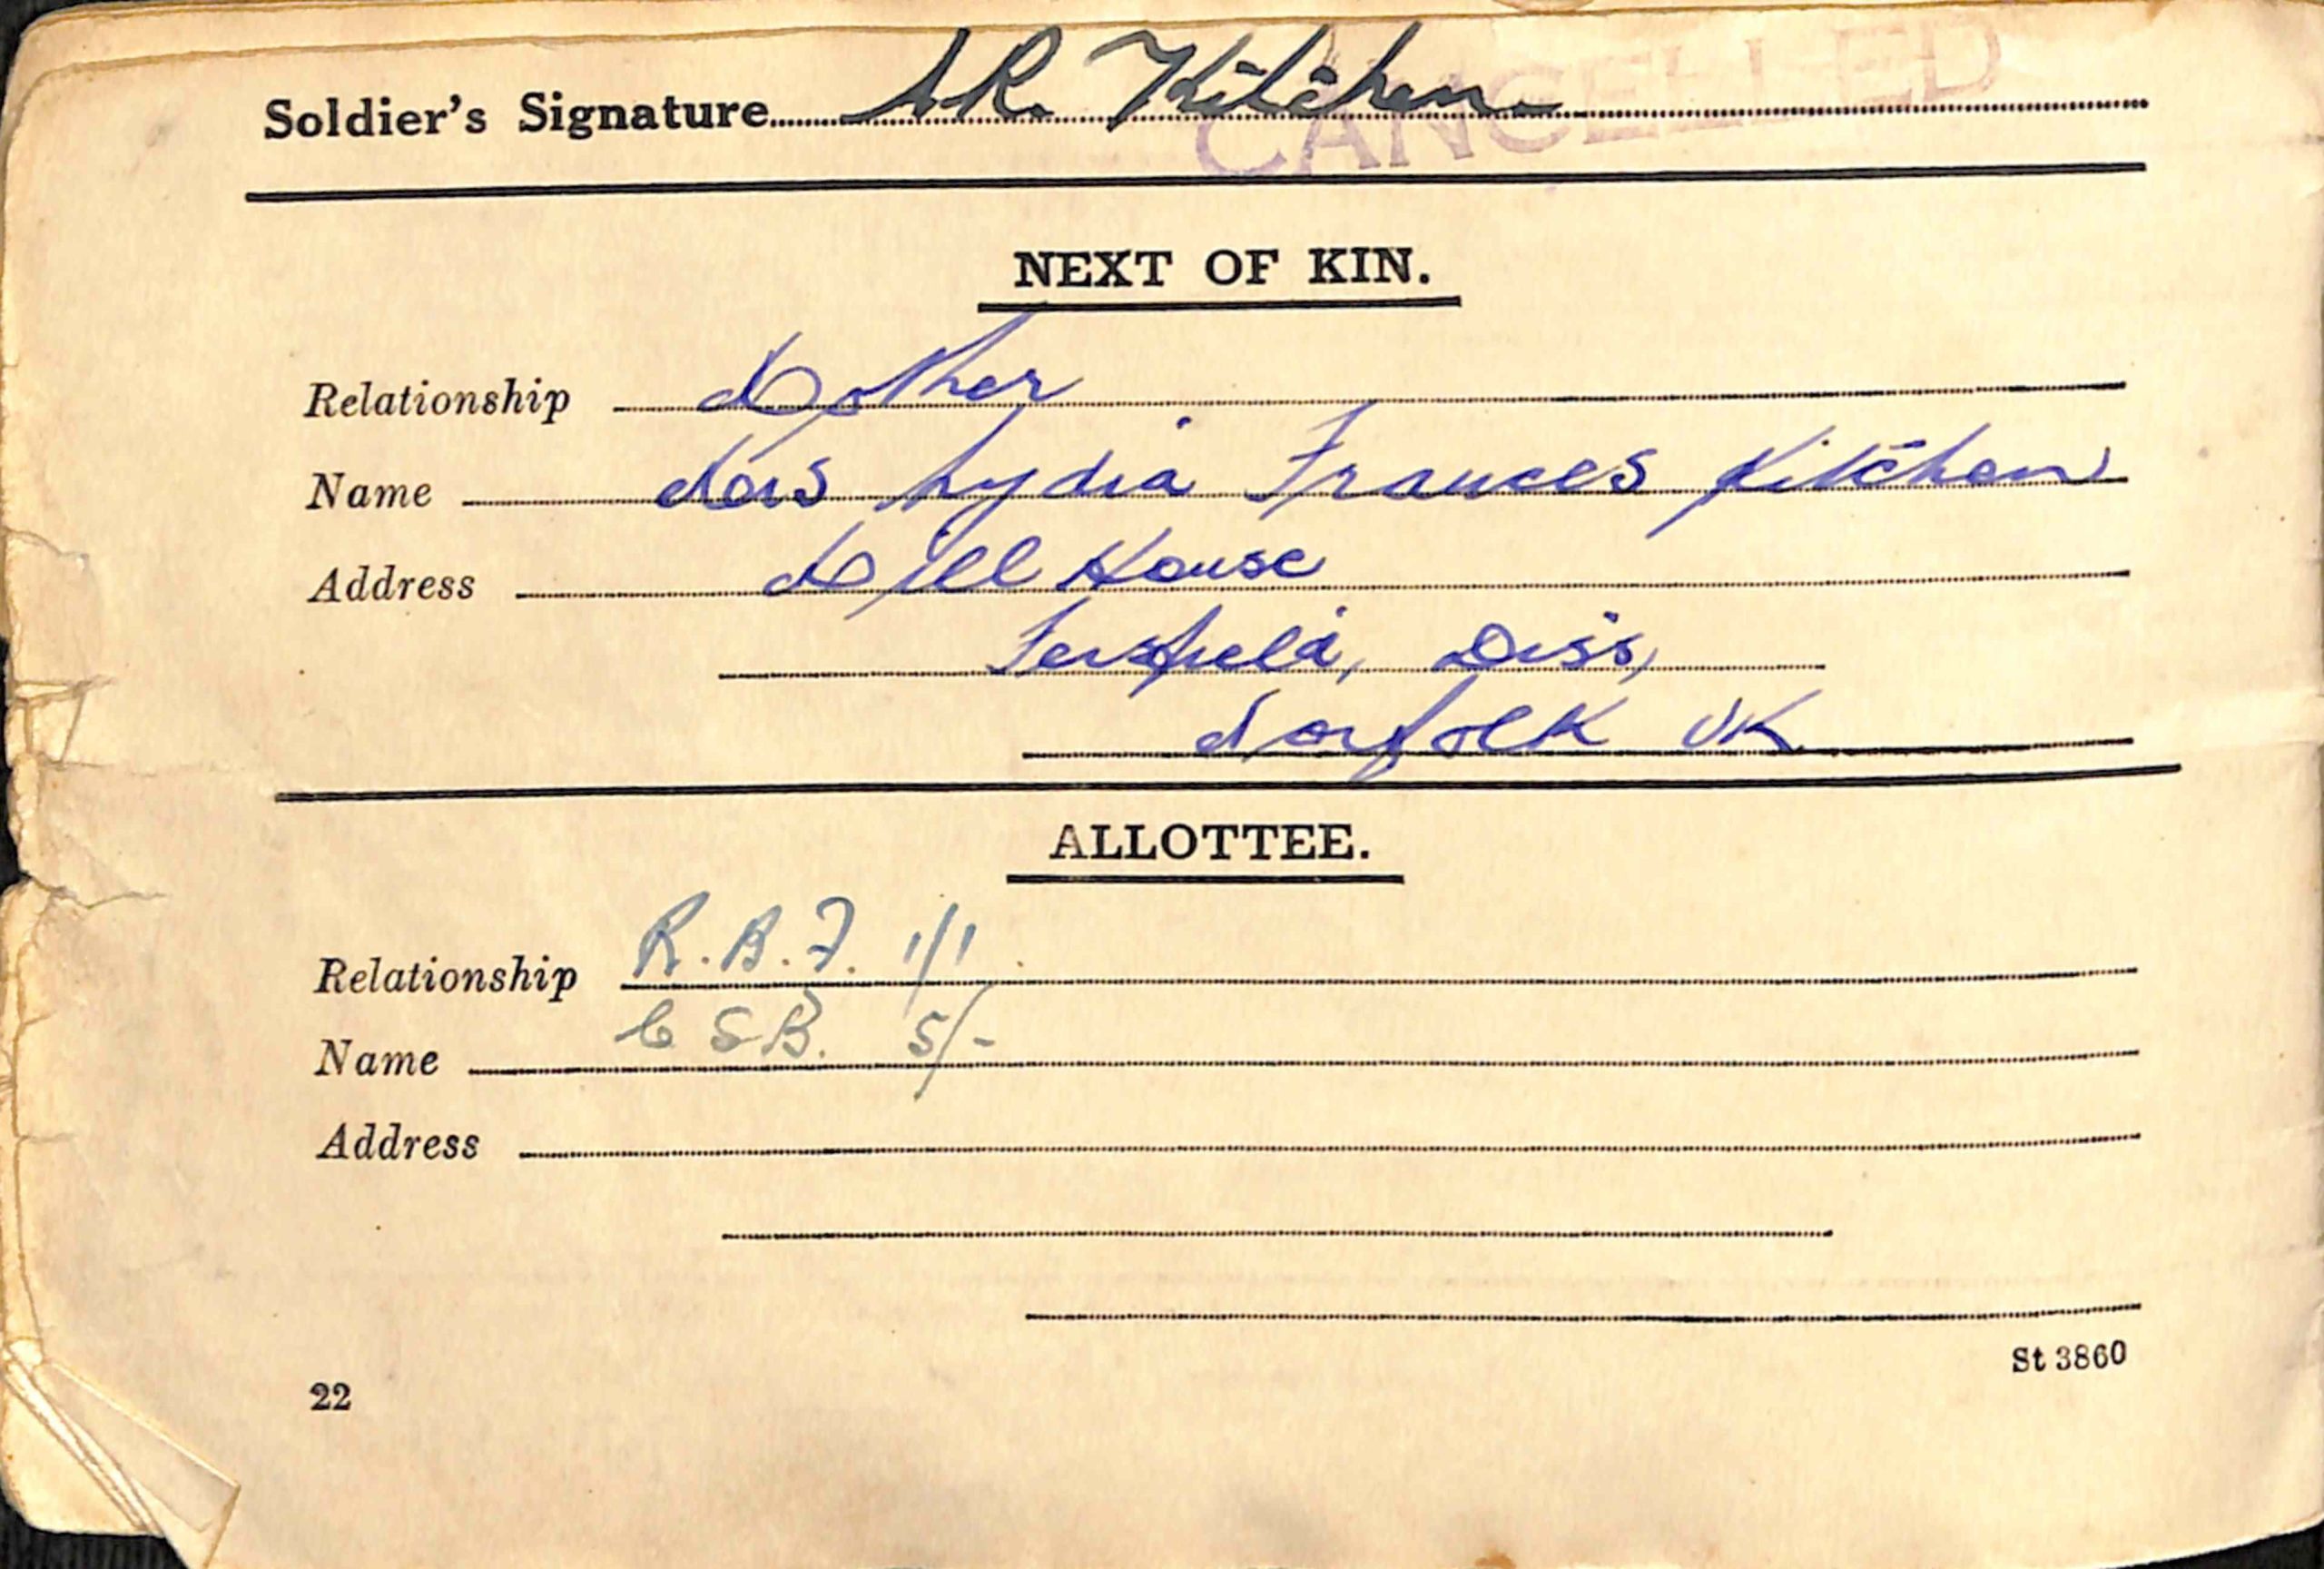 Soldier's Signature A.R. Kitchen
CANCELLED
NEXT OF KIN.
Relationship Mother
Name Mrs Lydia Frances Kitchen
Address Mill House
Fersfield, Diss,
Norfolk UK
ALLOTTEE.
Relationship R.B.F. 1/1
Name C S B. 5/-
Address
St 3860
22